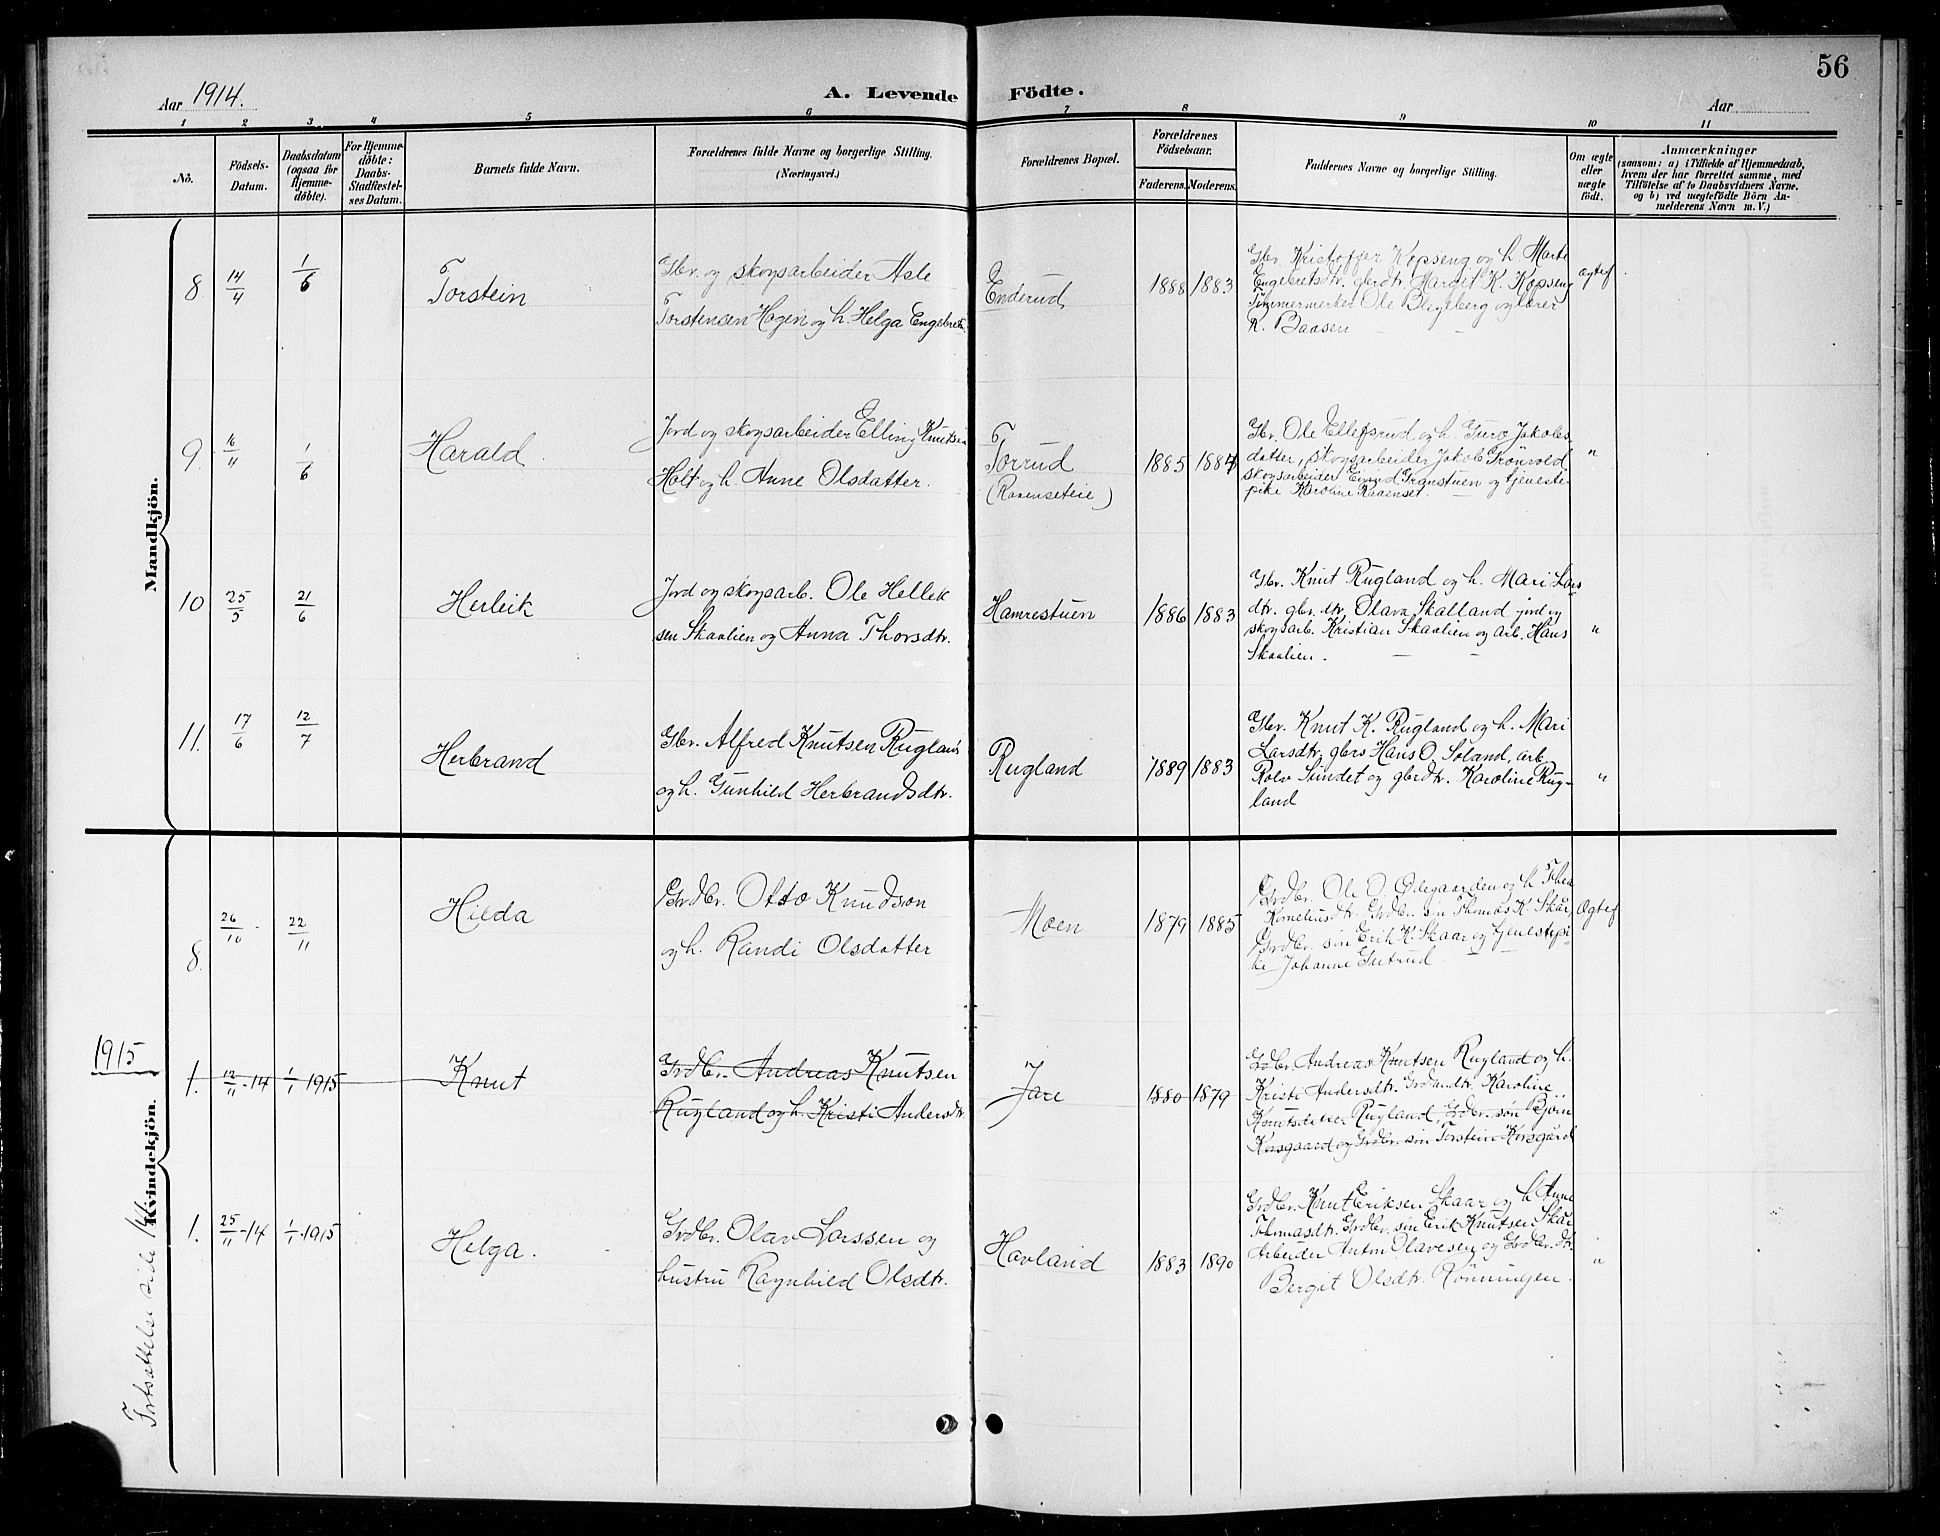 56
Aar 1914.
A. Levende Födte.
Aar
1 2 3 4 5 6 7 8 9 10 11
No.
Födsels-
Datum.
Daabsdatum
(ogsaa for
Hjemme-
döbte).
For Hjemme-
döbte:
Daabs-
Stadfæstel-
ses Datum.
Barnets fulde Navn.
Forældrenes fulde Navne og borgerlige Stilling.
(Næringsvei.)
Forældrenes Bopæl.
Forældrenes
Födselsaar.
Faderens. Moderens.
Faddernes Navne og borgerlige Stilling.
Om ægte
eller
uægte
födt.
Anmærkninger
(saasom: a) i Tilfælde af Hjemmedaab,
hvem der har forrettet samme, med
Tilföielse af to Daabsvidners Navne.
og b) ved uægtefödte Börn An-
melderens Navn m. V.)
Mandkjön.
8 14/4 1/6 Torstein
Gbr. og skogsarbeider Asle
Torstensen Hagen og h. Helga Engebretsd.
Enderud 1888 1883
Gbr. Kristoffer Kopseng og h. Marte
Engebretsdtr. gbrdtr. Margit K. Kopseng
Tömmermerker Ole Blegeberg og lærer
K. Baasen
ægtef.
9. 16/4 1/6 Harald.
Jord og skogsarbeider Elling Knutsen
Holt og h. Anne Olsdatter.
Torrud
(Raaenseteie)
1885 1884
Gbr. Ole Ellefsrud og h. Guro Jakobs-
datter, skogsarbeider Jakob Grönvold,
skogsarbeider Eivind Granstuen og tjeneste-
pike Karoline Raaenset. "
10 25/5 21/6 Herleik
Jord og skogsarb. Ole Hellek
sen Skaalien og Anna Thorsdtr.
Hamrestuen 1886 1883
Gbr. Knut Rugland og h. Mari Lars
dtr. gbr. dtr. Olava Skalland jord og
skogsarb. Kristian Skaalien og arb. Hans
Skaalien. "
11. 17/6 12/7 Herbrand
Gbr. Alfred Knutsen Rugland
og h. Gunhild Herbrandsdtr.
Rugland 1889 1883
Gbr. Knut K. Rugland og h. Mari
Larsdtr, gbrs Hans O. Söland, arb.
Rolv Sundet og gbrdtr. Karoline Rug-
land "
Kvindekjön.
8. 26/10 22/11 Hilda
Grdbr. Otto Knudson
og h. Randi Olsdatter
Moen 1879 1885
Grdbr. Ole O. Ødegaarden og h. Thea
Korneliusdtr. Grdbr. sön Thomas K. Skår,
Grdbr. sön Erik K. Skaar og tjenestepi-
ke Johanne Gutrud.
Ægtef
1915
1. 12/11-14 1/1-1915 Knut
Grdbr. Andreas Knutsen
Rugland og h. Kristi Andersdtr.
Jare 1880 1879
Gdbr. Andreas Knutsen Rugland og h.
Kristi Andersdtr. Grdmdtr. Karoline
Knutsdatter Rugland, Gdbr. sön Björn
Korsgaard og Grdbr. sön Torstein Korsgård
1. 25/11-14 1/1-1915 Helga.
Grdbr. Olav Larssen og
hustru Ragnhild Olsdtr.
Havland 1883 1890
Grdbr. Knut Eriksen Skaar og h. Anne
Thomasdtr. Grdbr. sön Erik Knutsen Skår
Arbeider Anton Olavesen og Grdbr. dtr.
Bergit Olsdtr. Rönningen. "
Fortsættelse side 166